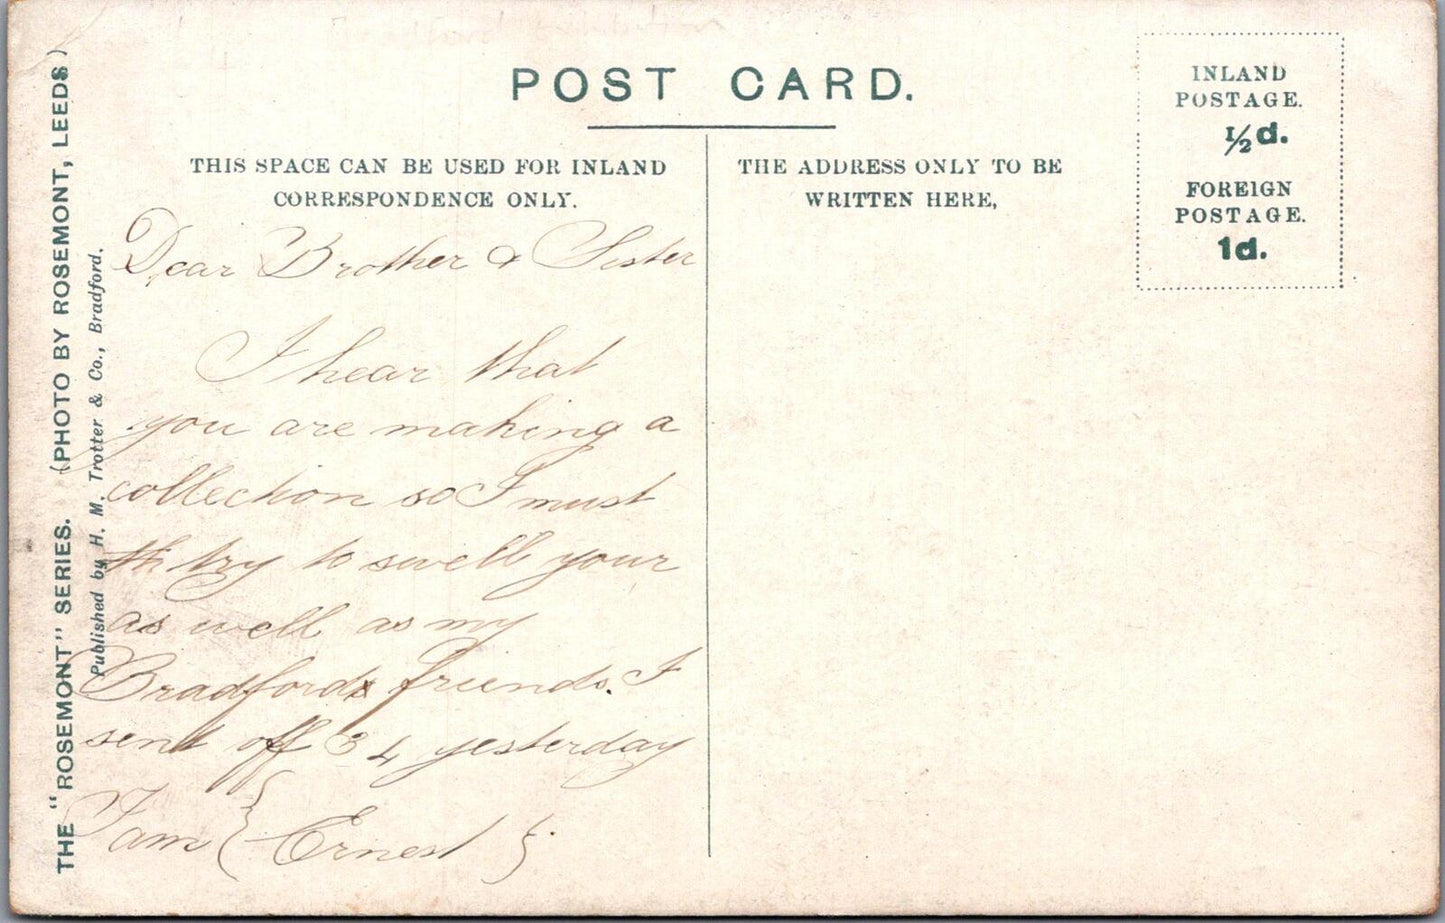 POST CARD.
THIS SPACE CAN BE USED FOR INLAND
CORRESPONDENCE ONLY.
THE ADDRESS ONLY TO BE
WRITTEN HERE,
INLAND
POSTAGE.
½d.
FOREIGN
POSTAGE.
1d.
THE "ROSEMONT" SERIES. (PHOTO BY ROSEMONT, LEEDS)
Published by H. M. Trotter & Co., Bradford.
Dear Brother & Sister
I hear that
you are making a
collection so I must
try to swell your
as well as my
Bradfords friends. I
sent off 34 yesterday
I am { Ernest }